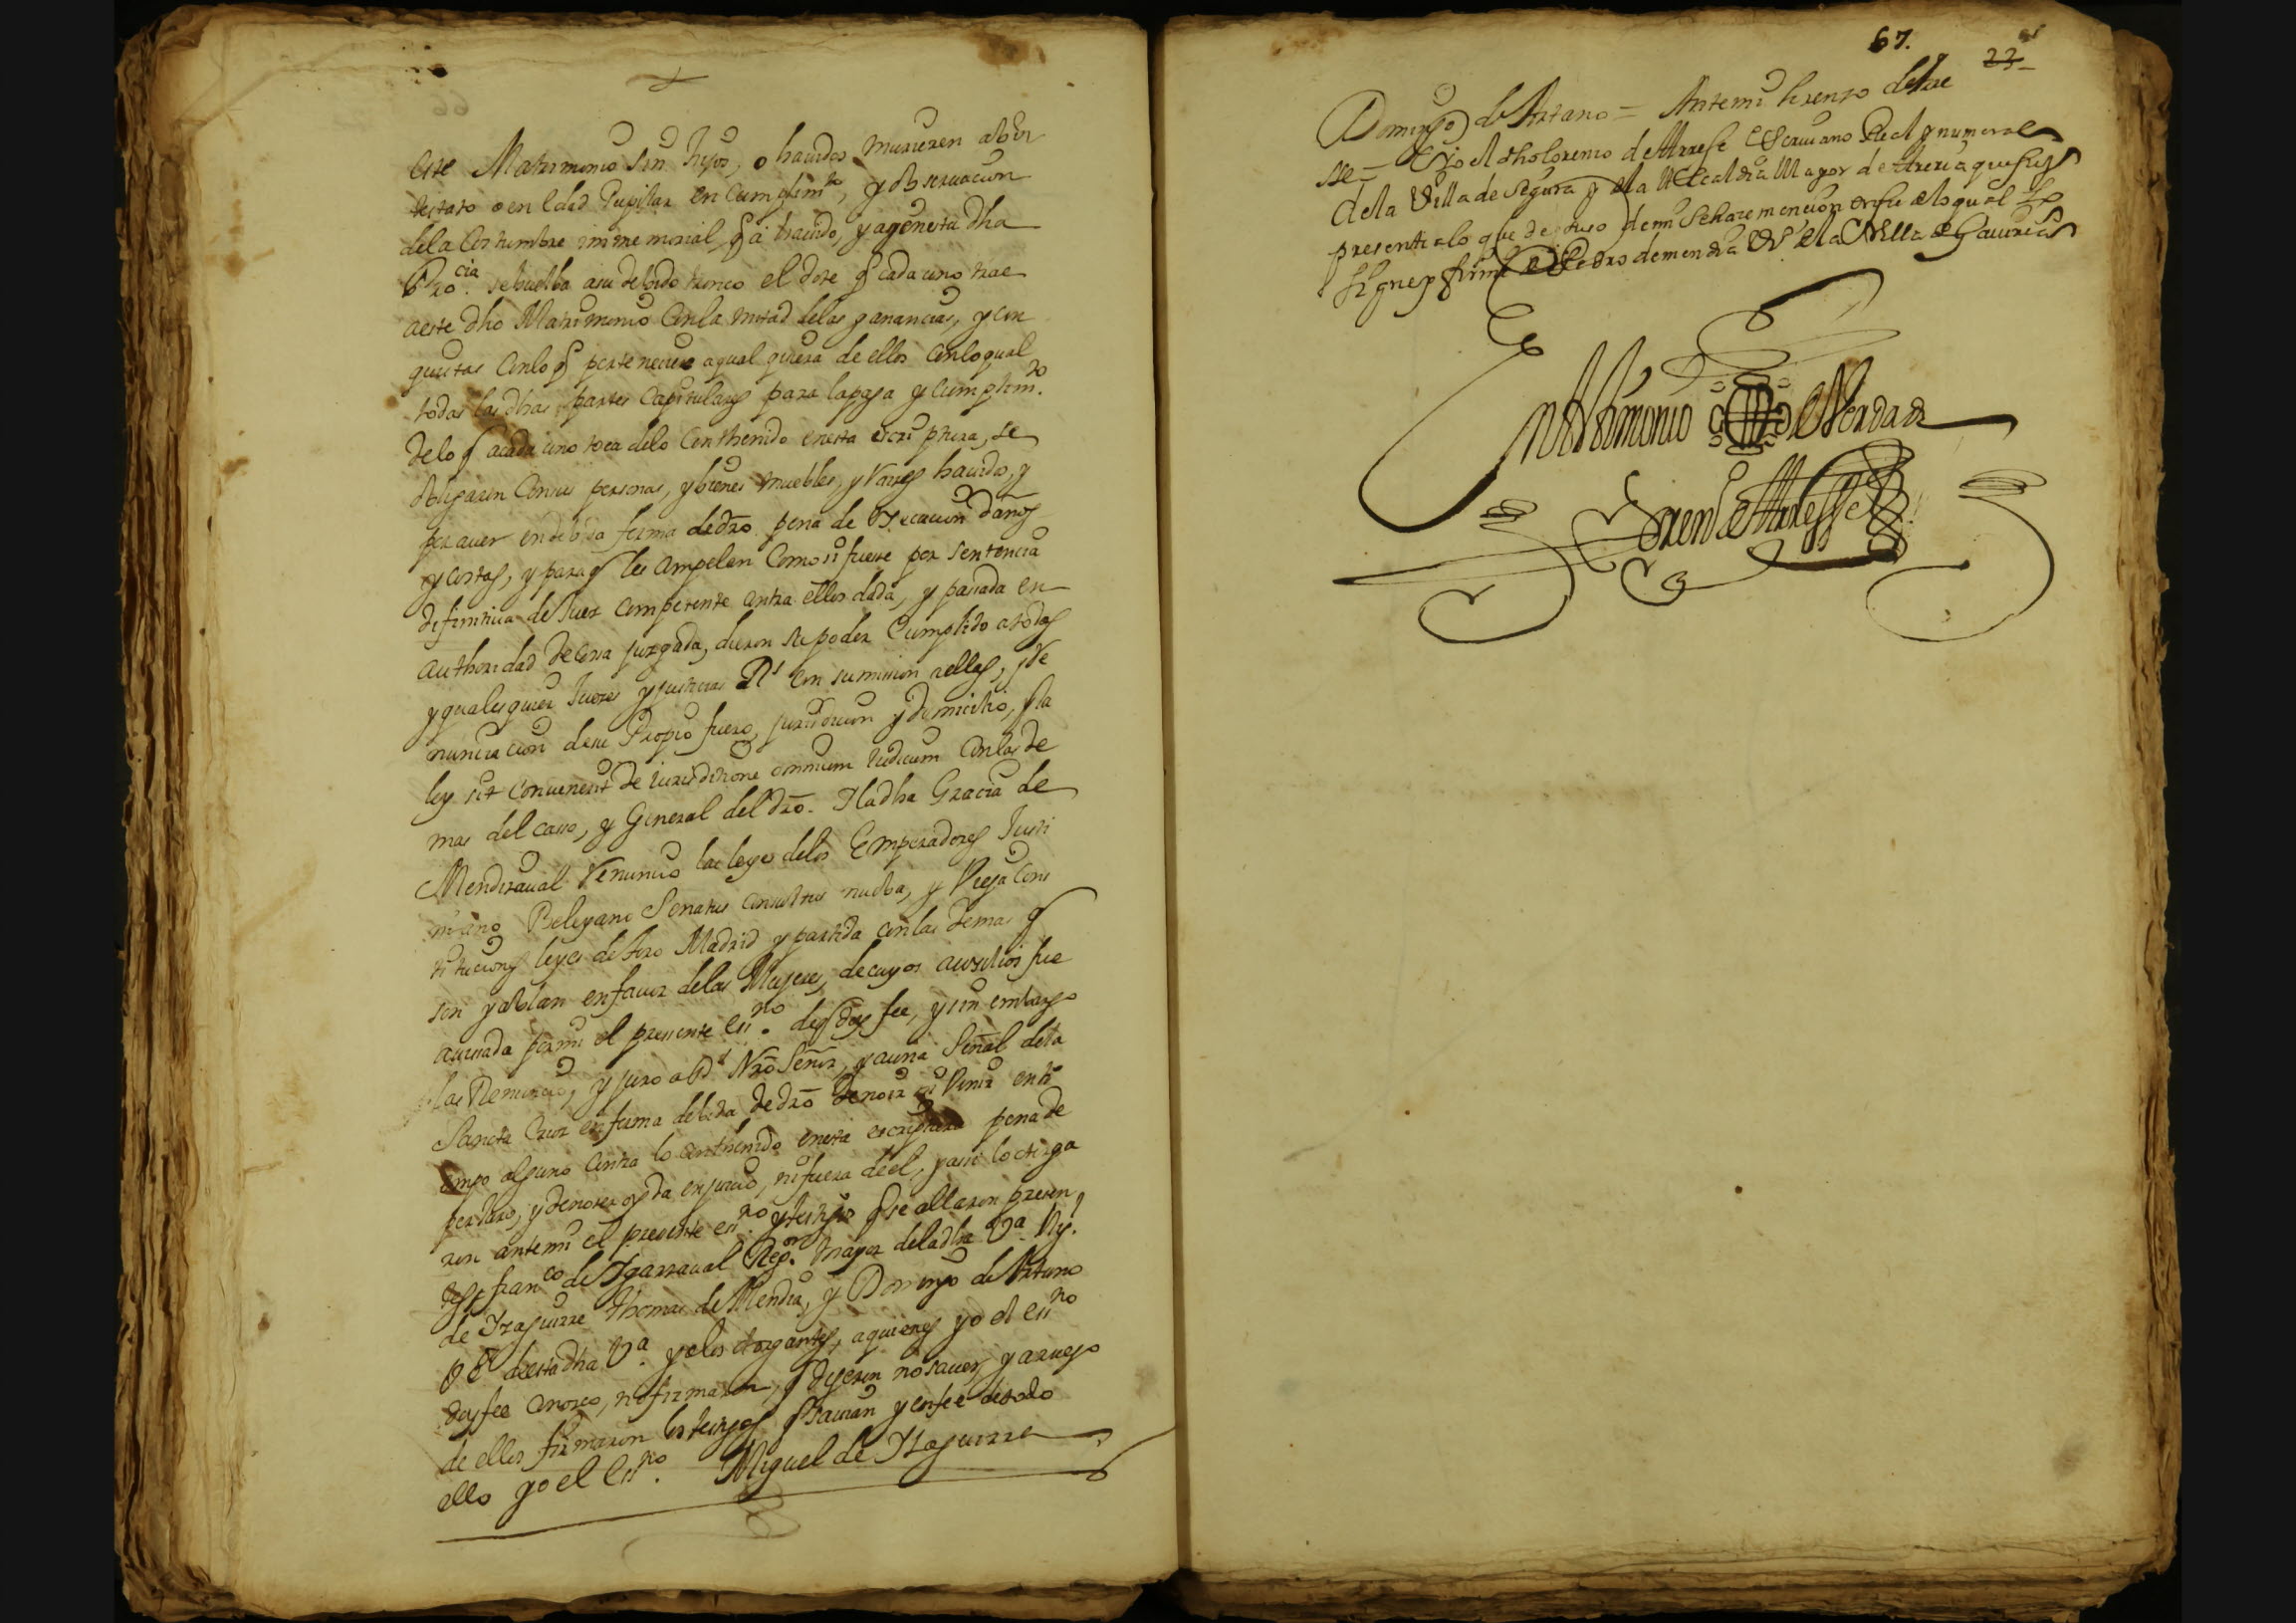 este Matrimonio sin hijos, o hauidos murieren abin
testato o en edad Pupilar en cumplimto, y obseruacion
dela Costumbre immemorial q a hauido, y ay en esta dha
Procia. sebuelba asu debido tronco el dote q cada uno trae
aeste dho Matrimonio Con la mitad delas ganancias, y con
quistas Conlo q perteneciere aqual quiera de ellos conloqual
todas las dhas partes Capitulares para lapaga y cumplimto.
delo q acada uno toca delo Conthenido enesta escriptura, se
obligaron Consus personas, y bienes muebles, y raices hauidos, y
por auer en debida forma de dro. pena de execucion daños
y costas, y para q les compelan Como si fuese por sentencia
difinitiua de Juez Competente contra ellos dada, y pasada en
authoridad de cosa juzgada, dieron su poder Cumplido atodos
y qualesquier Jueces y justicias Rs con sumision aellas, y Re
nunciacion desu Propio fuero, jurisdicion y domicilio, y la
ley sit conuenerit de iurisditione omnium iudicum Conlas de
mas del casso, y General del dro. Y la dha Gracia de
Mendizaual Renuncio las leyes delos Emperadores Justi
niano Beleyano Senatus consultus nueba, y Vieja Cons
tituciones leyes de toro Madrid y partida con las demas q
son y ablan enfauor delas Mujeres, de cuyos auxilios fue
auisada por mi el presente essno. de q doy fee, y sin embargo
las Renuncio, y juro a Ds Nro Señor, y a una Señal dela
Sancta Cruz en forma debida de dro de no ir ni Venir en ti
empo alguno Contra lo Conthenido enesta escriptura pena de
perjuro, y de no ser oyda en juicio, ni fuera deel, y assi lo otorga
ron ante mi el presente essno. y testigos q se allaron presen
tes franco de Ygarzaual Regor. mayor dela dha Va. Migl.
de Yzaguirre thomas de Mendia, y Domingo de Artano
Vs desta dha Va. y alos otorgantes, aquienes yo el essno
doy fee Conozco, no firmaron, q dijeron no sauer, y a ruego
de ellos firmaron los testigos q Sauian y enfee de todo
ello yo el essno. Miguel de Yzaguirre
67.
22
Domingo de Artano = Antemi lorenzo de Arre
sse = E yo el dho lorenzo de Arrese Escriuano Real y numeral
dela Villa de Segura y dela Alcaldia Mayor de Areria que fuy
presente alo que de suso de mi se hace mencion en fee delo qual
signe y firme a Pedro de mendia Vº dela Villa de Gauiria
En testimonio de Verdad
Lorenº de Arresse